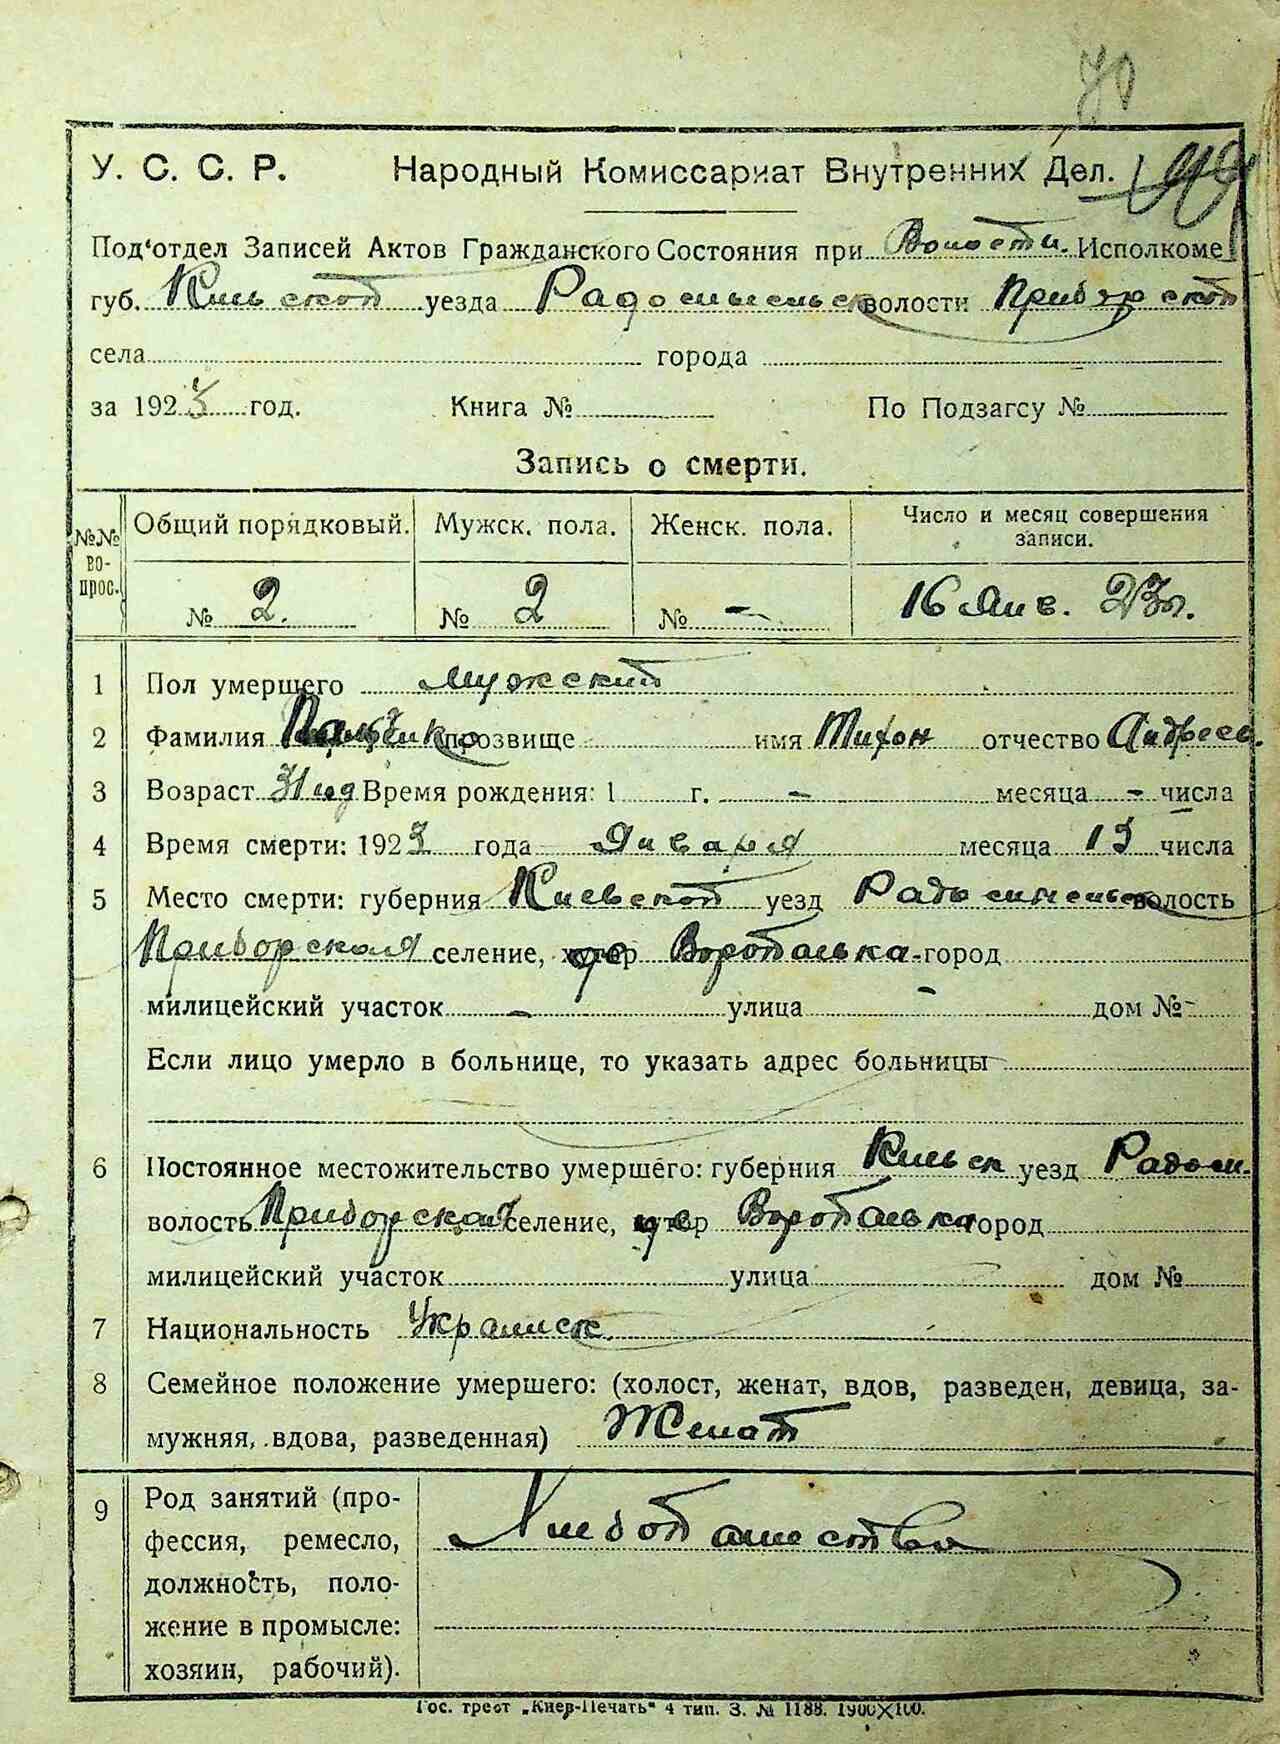 70
У. С. С. Р. Народный Комиссариат Внутренних Дел.
Под'отдел Записей Актов Гражданского Состояния при Волости. Исполкоме
губ. Киевской уезда Радомысльск волости Приборской
села города
за 1923 год. Книга № По Подзагсу №
Запись о смерти.
№№ вопрос. Общий порядковый. Мужск. пола. Женск. пола. Число и месяц совершения записи.
№ 2. № 2 № - 16 Янв. 23г.
1 Пол умершего мужский
2 Фамилия прозвище имя Тихон отчество Андреев.
3 Возраст Время рождения: 1 г. - месяца - числа
4 Время смерти: 1923 года Января месяца 15 числа
5 Место смерти: губерния Киевской уезд волость
Приборская селение, хутор город
милицейский участок - улица - дом № -
Если лицо умерло в больнице, то указать адрес больницы
6 Постоянное местожительство умершего: губерния уезд Радом.
волость Приборская селение, хутор город
милицейский участок улица дом №
7 Национальность
8 Семейное положение умершего: (холост, женат, вдов, разведен, девица, за-
мужняя, вдова, разведенная) Женат
9 Род занятий (про-
фессия, ремесло,
должность, поло-
жение в промысле:
хозяин, рабочий).
Гос. трест „Киев-Печать" 4 тип. З. № 1188. 1900X100.